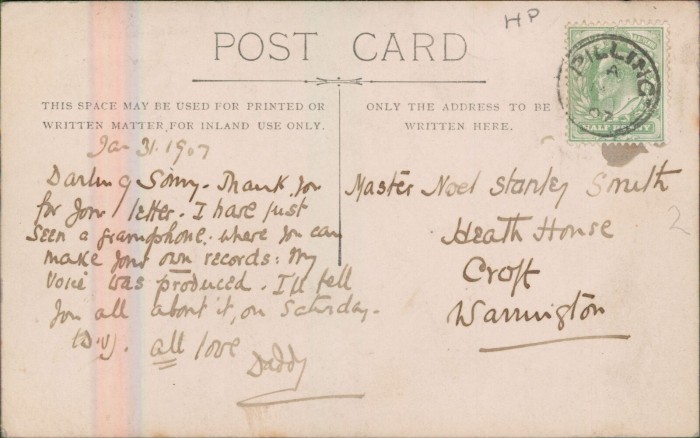 HP
POST CARD
THIS SPACE MAY BE USED FOR PRINTED OR
WRITTEN MATTER FOR INLAND USE ONLY.
ONLY THE ADDRESS TO BE
WRITTEN HERE.
PILLING
A
07
HALFPENNY
Jan 31. 1907
Darling Sonny. Thank you
for your letter. I have just
seen a gramophone. where you can
make your own records: my
voice was produced. I'll tell
you all about it, on Saturday.
(D.V). all love
Daddy
Master Noel Stanley Smith
Heath House
Croft
Warrington
2